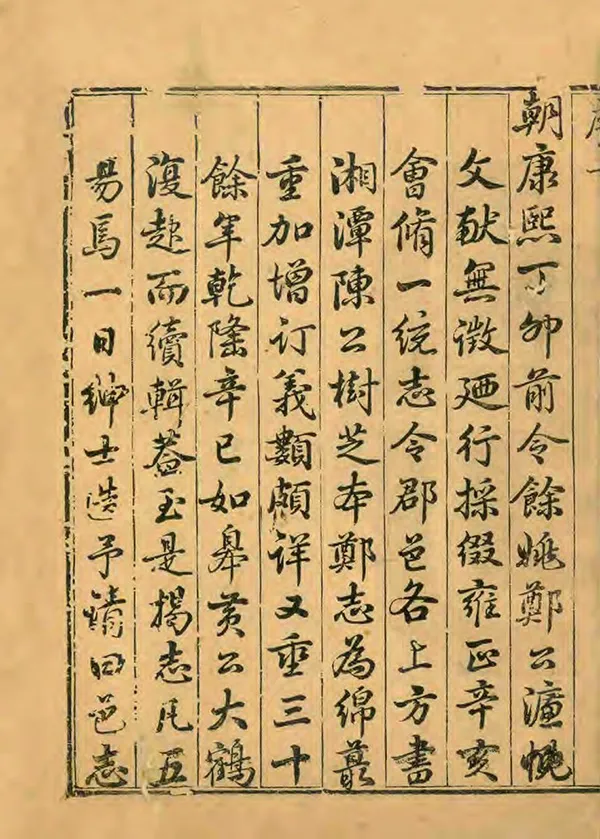 朝康熙丁卯前令餘姚鄭公濂愧
文献無徵廼行採綴雍正辛亥
會脩一統志令郡邑各上方書
湘潭陳公樹芝本鄭志為綿蕞
重加增訂義類頗詳又垂三十
餘年乾隆辛巳如皋黄公大鶴
復起而續輯葢至是揭志凡五
易焉一日紳士造予請曰邑志